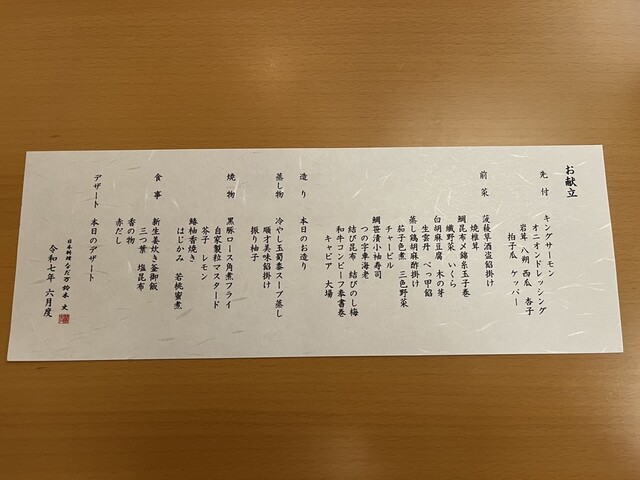 お献立
先付 キングサーモン
オニオンドレッシング
岩茸 八朔 西瓜 杏子
拍子瓜 ケッパー
前菜 菠薐草酒盗餡掛け
焼椎茸
鯛昆布〆錦糸玉子巻
織野菜 いくら
白胡麻豆腐 木の芽
生雲丹 べっ甲餡
蒸し鶏胡麻酢掛け
茄子色煮 三色野菜
チャービル
鯛笹漬小袖寿司
つの字車海老
結び昆布 結びのし梅
和牛コンビーフ奉書巻
キャビア 大場
造り 本日のお造り
蒸し物 冷やし玉蜀黍スープ蒸し
順才美味餡掛け
振り柚子
焼物 黒豚ロース角煮フライ
自家製粒マスタード
茶子 レモン
鰆柚香焼き
はじかみ 若桃蜜煮
食事 新生姜炊き釜御飯
三つ葉 塩昆布
香の物
赤だし
デザート 本日のデザート
日本料理 なだ万 鈴木 史
令和七年 六月度